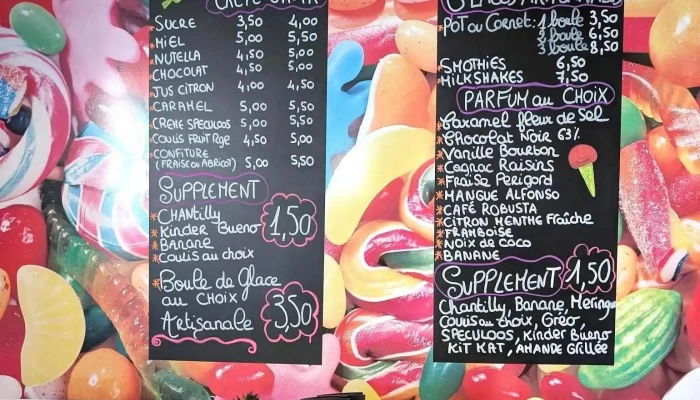 SUCRE 3,50 4,00
MIEL 5,00 5,50
NUTELLA 4,50 5,00
CHOCOLAT 4,50 5,00
JUS CITRON 4,00 4,50
CARAMEL 5,00 5,50
CREME SPECULOOS 5,00 5,50
COULIS FRUIT Rge 4,50 5,00
CONFITURE
(FRAISE OU ABRICOT) 5,00 5,50
SUPPLEMENT
CHANTILLY
Kinder Bueno
Banane
Coulis au choix
1,50
Boule de Glace
au CHOIX
Artisanale
3,50
POT ou Cornet: 1 boule 3,50
2 boule 6,50
3 boule 8,50
SMOTHIES 6,50
MILKSHAKES 7,50
PARFUM au CHOIX
Caramel fleur de Sel
Chocolat Noir 63%
Vanille Bourbon
Cognac Raisins
Fraise Perigord
MANGUE ALFONSO
CAFÉ ROBUSTA
CITRON MENTHE Fraîche
FRAMBOISE
NOIX de coco
BANANE
SUPPLEMENT 1,50
Chantilly, Banane, Meringue
Coulis au choix, Oreo
SPECULOOS, Kinder Bueno
KIT KAT, AMANDE GRILLÉE